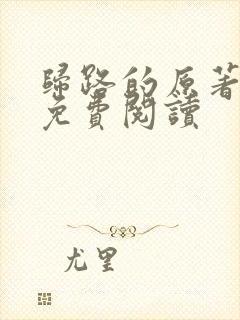 歸路的原著
免費閱讀
尤里